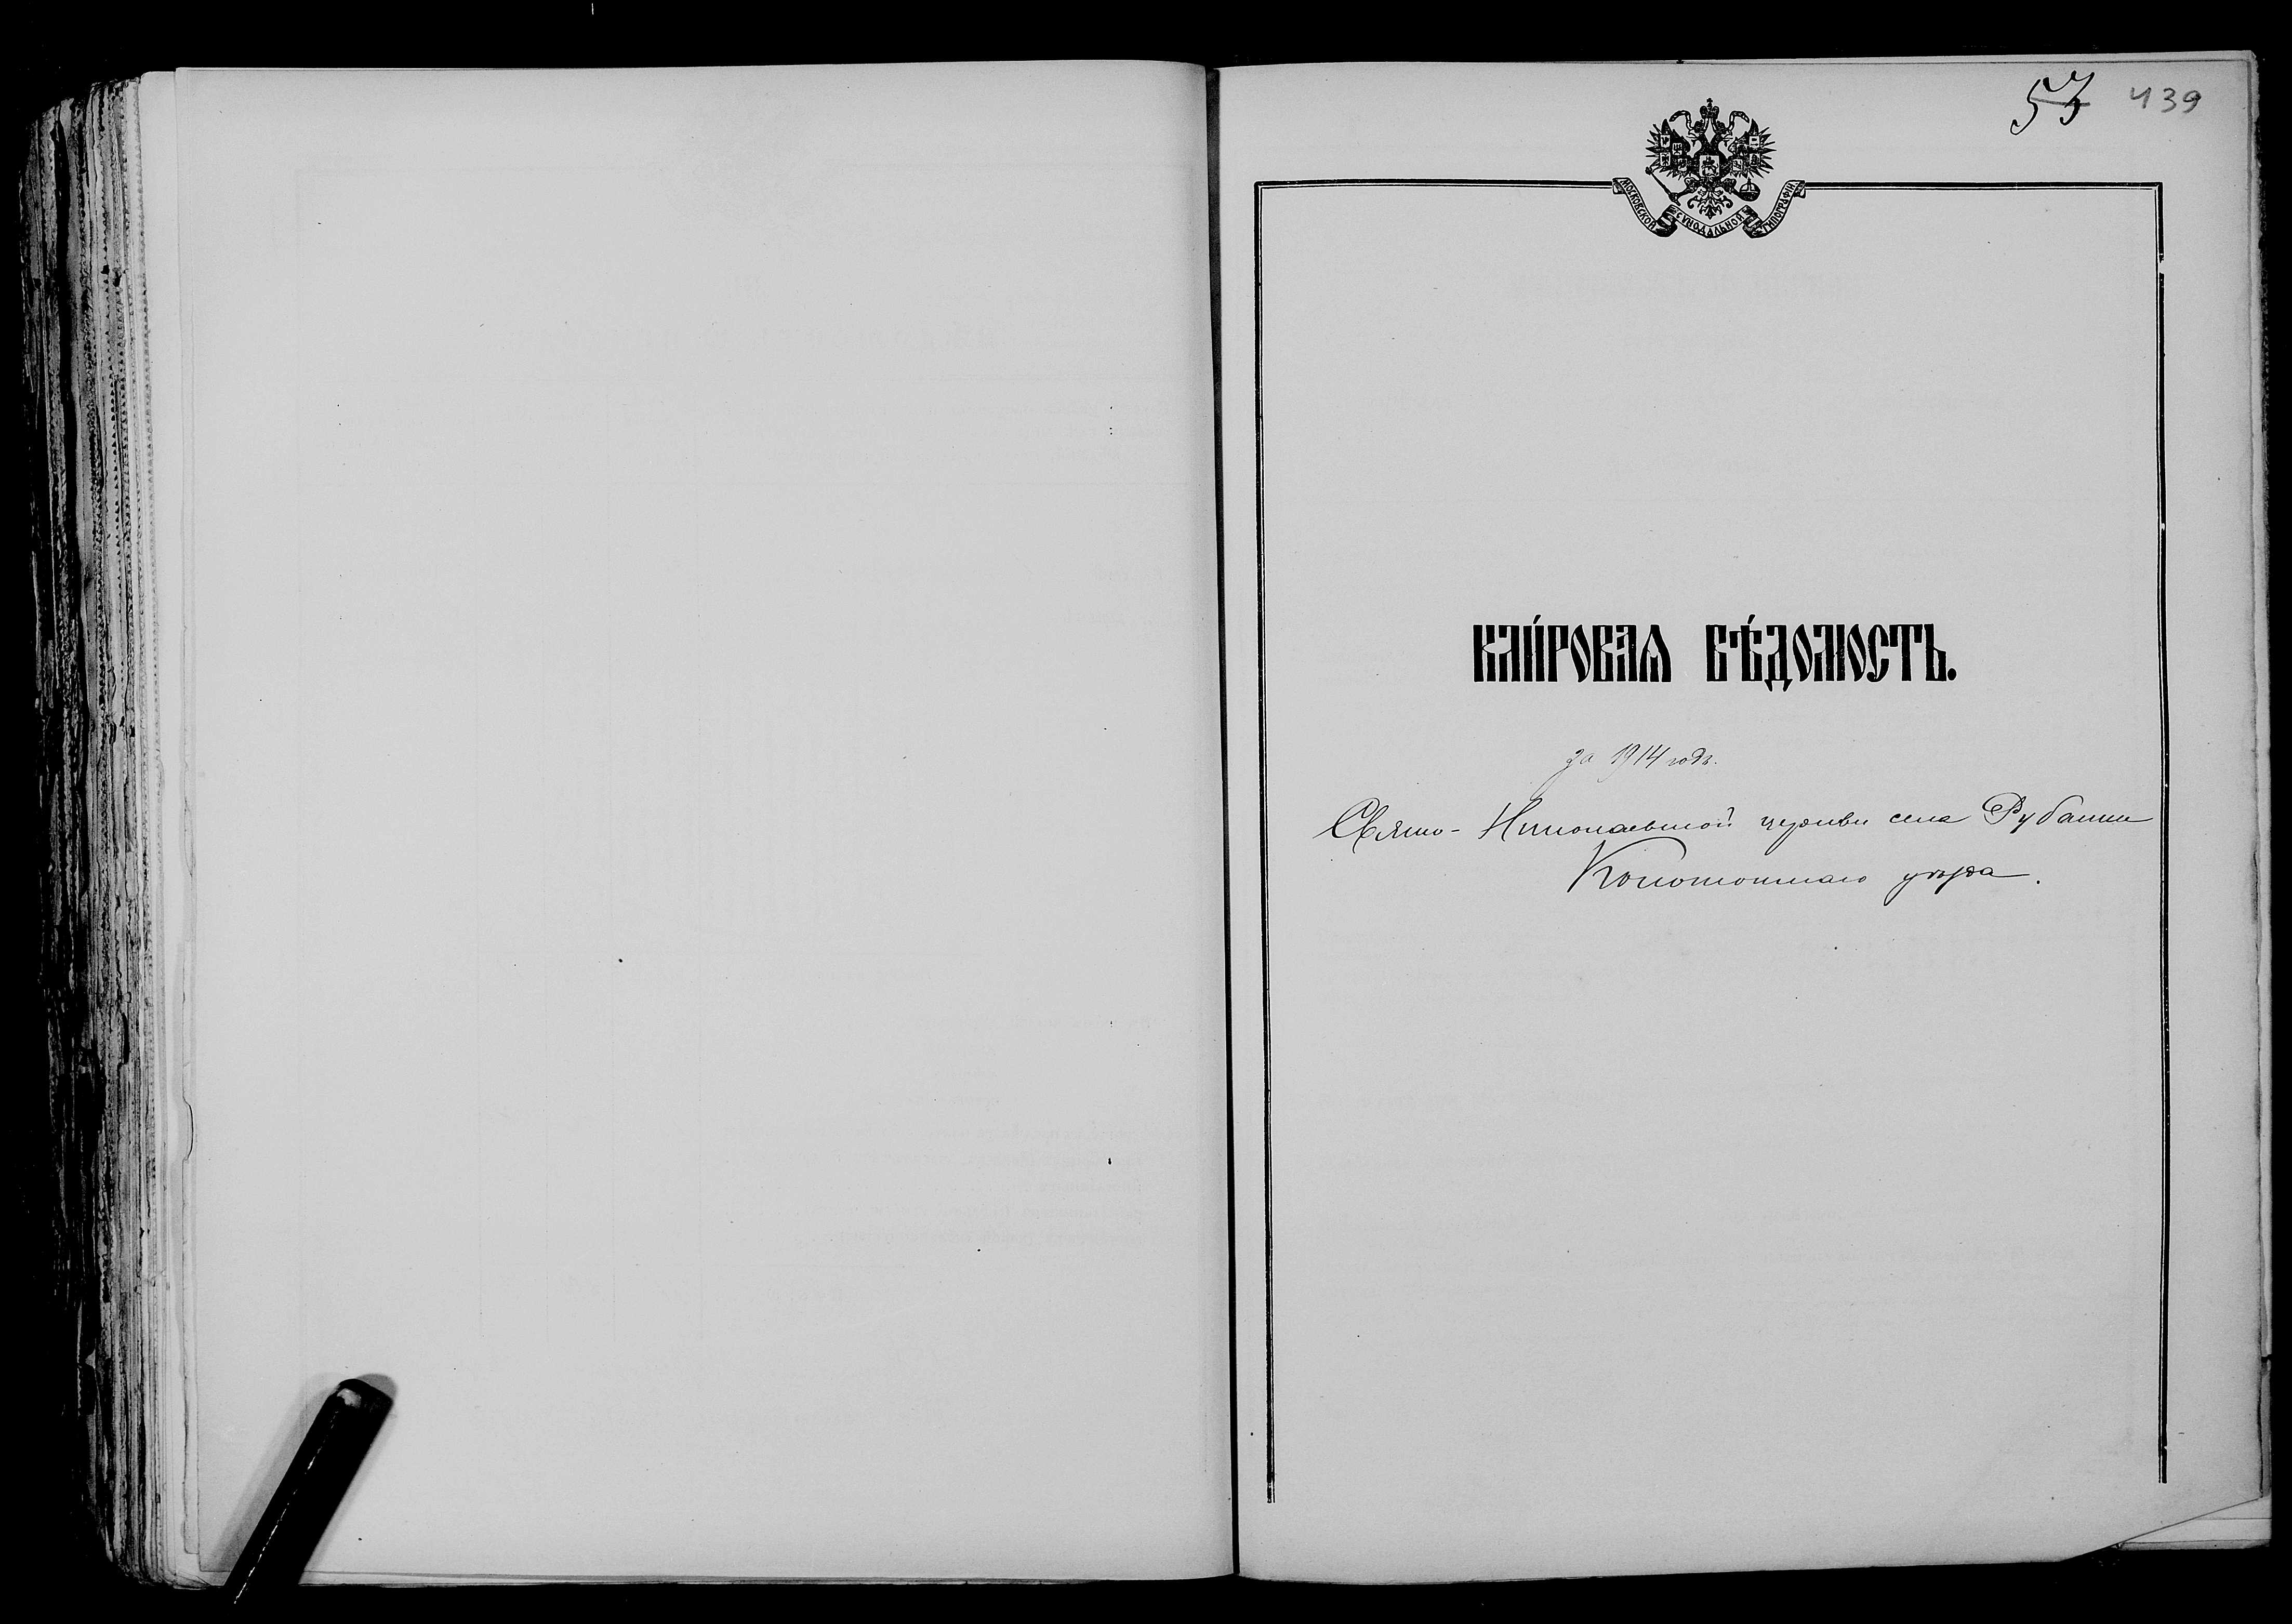 53 439
МОСКОВСКОЙ СѴНОДАЛЬНОЙ ТИПОГРАФІИ
КЛИ́РОВАЯ ВѢ́ДОМОСТЬ.
за 1914 годъ.
Свято-Николаевской церкви села Рубанки
Конотопскаго уѣзда.